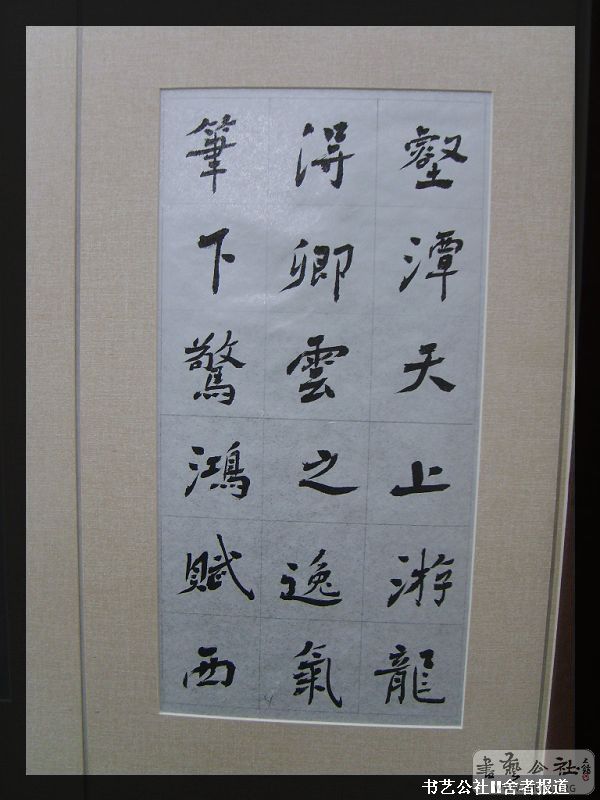 壑潭天上游龍
得卿雲之逸氣
筆下驚鴻賦西
书艺公社
书艺公社II舍者报道